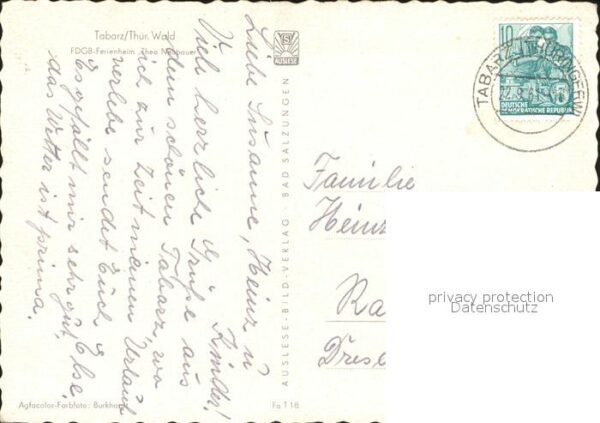 Tabarz/Thür. Wald
FDGB-Ferienheim "Theo Neubauer"
Liebe Susanne, Heinz u
Kinder!
Viele herzliche Grüße aus
dem schönen Tabarz, wo
ich zur Zeit meinen Urlaub
verlebe sendet Euch Else.
Es gefällt mir sehr gut,
das Wetter ist prima.
Agfacolor-Farbfoto: Burkhardt
Fa 118
AUSLESE
AUSLESE-BILD-VERLAG · BAD SALZUNGEN
10
DEUTSCHE
DEMOKRATISCHE REPUBLIK
TABARZ (THÜRINGERW)
Familie
Heinz
Ra
Dresd
privacy protection
Datenschutz